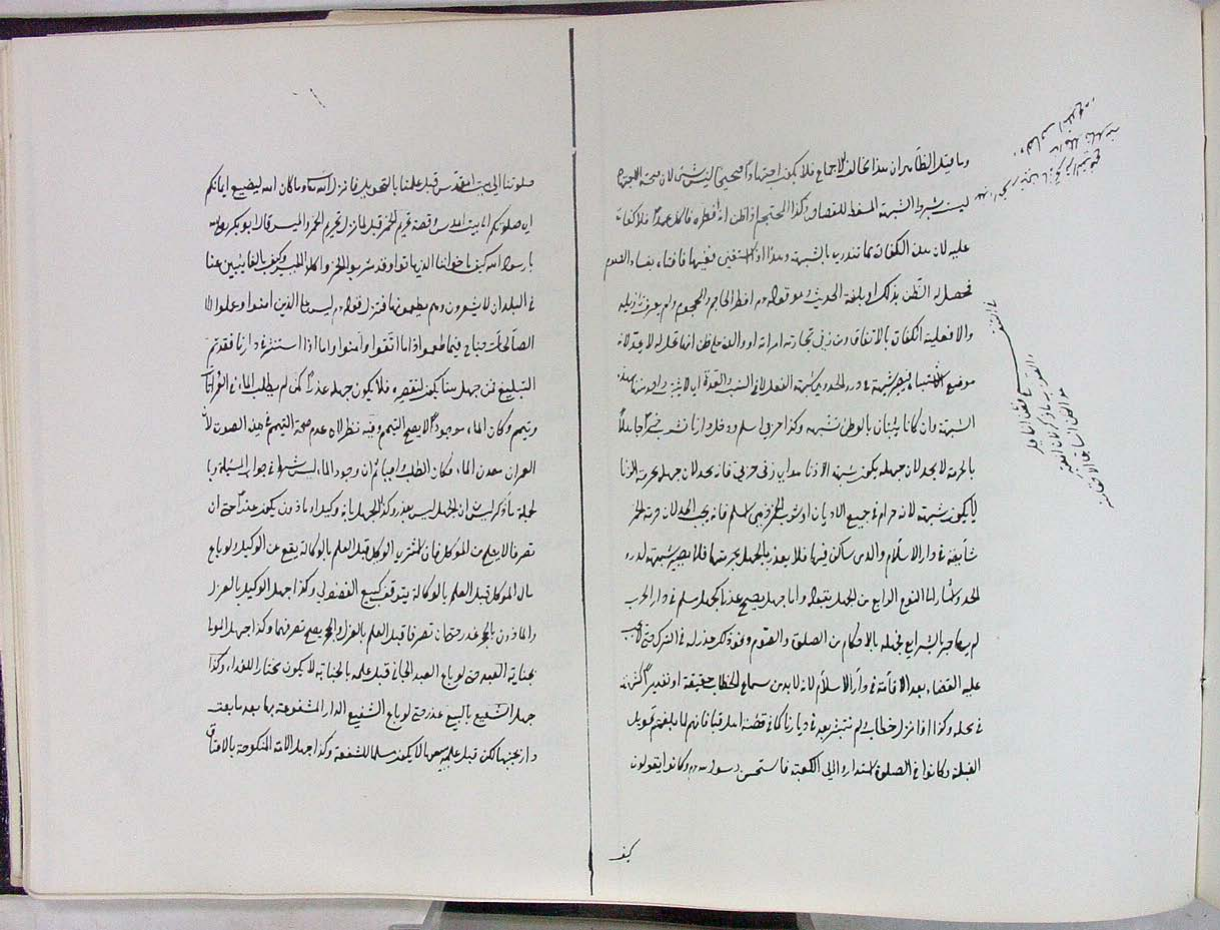 وما قيل الظاهر ان هذا مخالف للاجماع فلا يكون اجتهادا صحيحا ليس بشئ لان صحة الاجتهاد
ليست بشرط الشبهة المسقطة للقصاص وكذا المحتجم اذا ظن انه افطره فاكل عمدا فلا كفارة
عليه لان هذه الكفارة مما تندرئ بالشبهة وهذا اذا استفتى فقيها فافتاه بفساد الصوم
فحصل له الظن بذلك او بلغه الحديث وهو قوله افطر الحاجم والمحجوم ولم يعرف تأويله
والا فعليه الكفارة بالاتفاق ومن زنى بجارية امرأته او والده على ظن انها تحل له لا يحد لانه
موضع الاشتباه فيصير شبهة في درء الحد وهي شبهة الفعل لا في النسب والعدة اى لا يثبت واحد منهما بهذه
الشبهة وان كانا يثبتان بالوطئ بشبهة وكذا حربي اسلم ودخل دارنا فشرب خمرا جاهلا
بالحرمة لا يحد لان جهله يكون شبهة لا ان زنا هذا اى زنى حربي فانه يحد لان جهله بحرمة الزنا
لا يكون شبهة لانه حرام في جميع الاديان او شرب الخمر ذمي اسلم فانه يجب الحد لان حرمة الخمر
شايعة في دار الاسلام والذمي ساكن فيها فلا يعذر بالجهل بحرمتها فلا يصير شبهة لدرء
الحد واشار الى النوع الرابع من الجهل بقوله واما جهل يصلح عذرا كجهل مسلم في دار الحرب
لم يهاجر بالشرايع فجهله بالاحكام من الصلوة والصوم ونحو ذلك عذر له في الترك حتى لا يجب
عليه القضاء بعد الاقامة في دار الاسلام لانه لا بد من سماع الخطاب حقيقة او تقديرا بشهرته
في محله وكذا اذا نزل خطاب ولم ينتشر بعد في ديارنا كما في قصة اهل قبا فانهم لما بلغهم تحويل
القبلة وكانوا في الصلوة استداروا الى الكعبة فاستحسن رسول الله وكانوا يقولون
كيف
صلوتنا الى بيت المقدس قبل علمنا بالتحويل فانزل الله تعالى وما كان الله ليضيع ايمانكم
اى صلوتكم الى بيت المقدس وقصة تحريم الخمر قبل لما نزل تحريم الخمر والميسر قال ابو بكر رضي الله
يا رسول الله كيف باخواننا الذين ماتوا وقد شربوا الخمر واكلوا الميسر وكيف بالغايبين عنا
في البلدان لا يشعرون وهم يطعمونها فنزل قوله ليس على الذين امنوا وعملوا
الصالحات جناح فيما طعموا اذا ما اتقوا وآمنوا واما اذا انتشر في دارنا فقد تم
التبليغ فمن جهل هنا يكون لتقصيره فلا يكون جهله عذرا كمن لم يطلب الماء في العمرانات
وتيمم وكان الماء موجودا لا يصح التيمم وفيه نظر لان عدم صحة التيمم في هذه الصورة لأن
العمران معدن الماء فكان الطلب واجبا ثم ان وجود الماء ليس شرطا في جواب المسئلة وبا
لجملة ما ذكر ليس ان الجهل ليس بعذر وكذا الجهل بانه وكيل او ماذون يكون عذرا حتى ان
تصرفا لا يصح من الموكل فان اشترى الوكيل قبل العلم بالوكالة يقع عن الوكيل ولو باع
مال الموكل قبل العلم بالوكالة يتوقف كبيع الفضولي وكذا جهل الوكيل بالعزل
والماذون بالحجر عذر حتى ان تصرفا قبل العلم بالعزل والحجر يصح تصرفهما وكذا جهل المولى
بجناية العبد حتى لو باع العبد الجاني قبل علمه بالجناية لا يكون مختارا للفداء وكذا
جهل الشفيع بالبيع عذر حتى لو باع الشفيع الدار المشفوعة بها بعد ما بيعت
دار بجنبها لكن قبل علمه ببيعها لا يكون مسلما للشفعة وكذا جهل الامة المنكوحة بالاعتاق